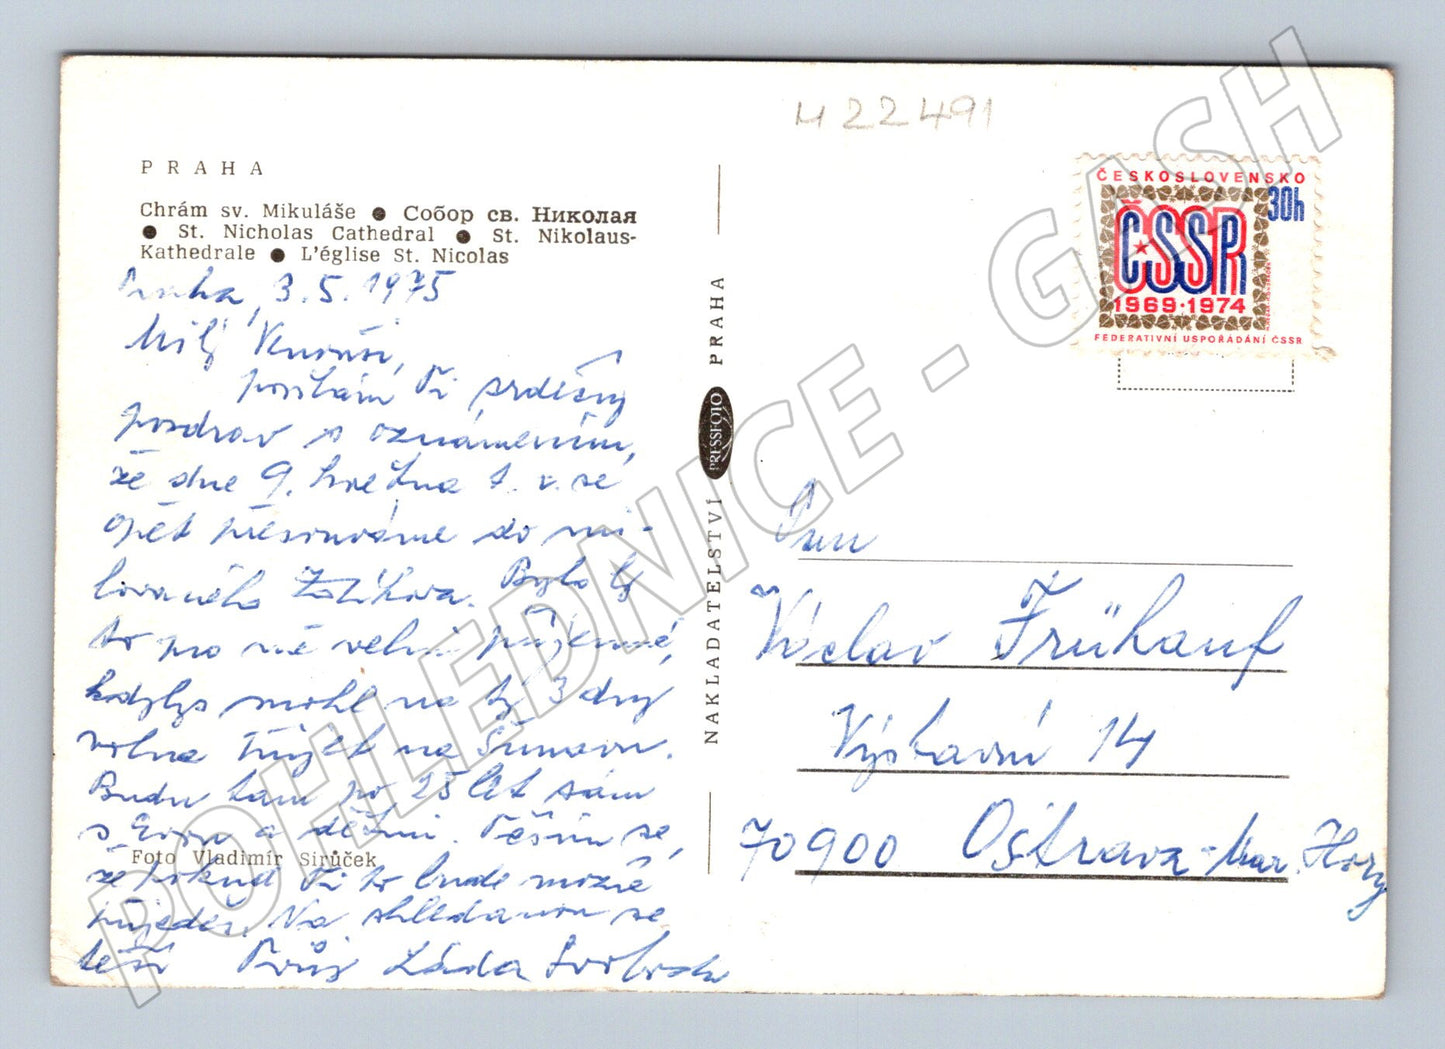 M 22491
PRAHA
Chrám sv. Mikuláše ● Собор св. Николая
● St. Nicholas Cathedral ● St. Nikolaus-
Kathedrale ● L'église St. Nicolas
Praha, 3.5.1975
Milý
posílám Ti srdečný
pozdrav s oznámením,
že dne 9. května t. v. se
opět přesouváme do mi-
lovaného Žolíkova. Bylo by
to pro mě velmi příjemné,
kdybys mohl na ty 3 dny
volna přijet na Šumavu.
Budu tam po 25 let sám
s Evou a dětmi. Těším se,
že pokud Ti to bude možné
přijedeš. Na shledanou se
těší Tvůj Láďa Svoboda
Foto Vladimír Sirůček
NAKLADATELSTVÍ PRESSFOTO PRAHA
ČESKOSLOVENSKO
30h
ČSSR
1969·1974
FEDERATIVNÍ USPOŘÁDÁNÍ ČSSR
Pan
Václav Frühauf
Výstavní 14
70900 Ostrava-Mar. Hory
POHLEDNICE - GASH